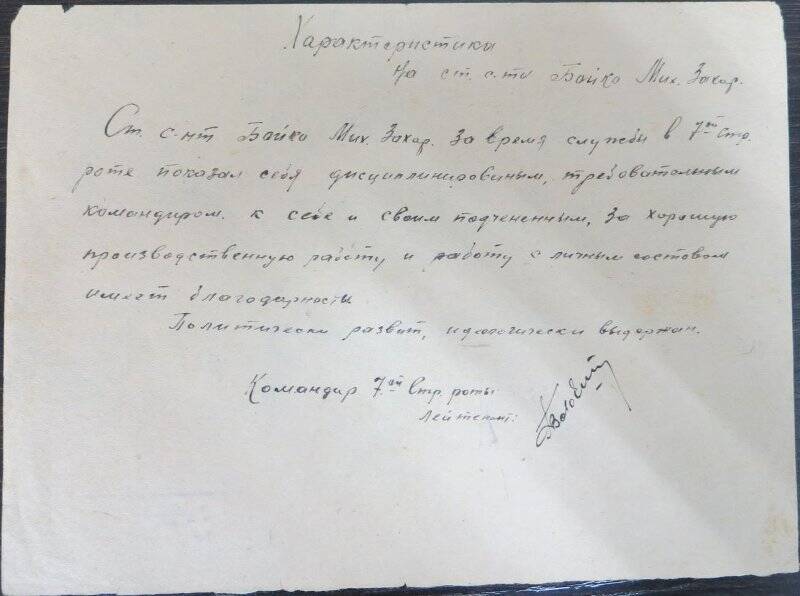 Характеристика
на ст. с-та Бойко Мих. Захар.
Ст. с-нт Бойко Мих. Захар. за время службы в 7ой стр.
роте показал себя дисциплинированым, требовательным
командиром. к себе и своим подчененным, за хорошую
производственную работу и работу с личным составом
имеет благодарность
Политически развит, идеологически выдержан.
Командир 7ой стр. роты
Лейтенант: